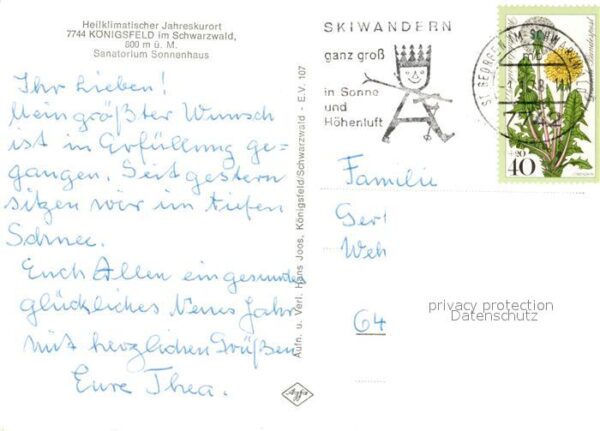 Heilklimatischer Jahreskurort
7744 KÖNIGSFELD im Schwarzwald,
800 m ü. M.
Sanatorium Sonnenhaus
Ihr Lieben!
Mein größter Wunsch
ist in Erfüllung ge-
gangen. Seit gestern
sitzen wir im tiefen
Schnee.
Euch Allen ein gesundes
glückliches Neues Jahr
mit herzlichen Grüßen
Eure Thea.
Aufn. u. Verl. Hans Joos, Königsfeld/Schwarzwald - E.V. 107
Agfa
SKIWANDERN
ganz groß
in Sonne
und
Höhenluft
ST. GEORGEN IM SCHWARZW
7742
+20
40
Familie
Gert
Weh
64
privacy protection
Datenschutz